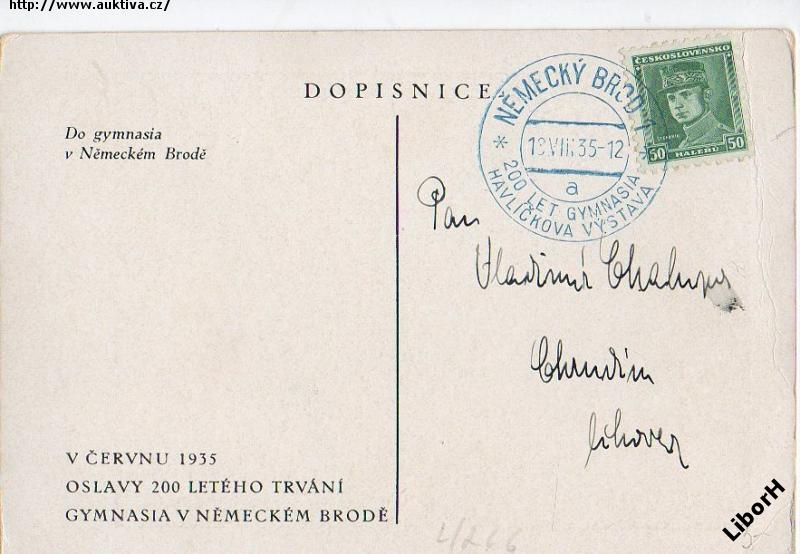 http://www.auktiva.cz/
DOPISNICE
Do gymnasia
v Německém Brodě
NĚMECKÝ BROD 1
18.VIII.35-12
a
* 200 LET GYMNASIA
HAVLÍČKOVA VÝSTAVA
ČESKOSLOVENSKO
50 HALÉŘŮ 50
Pan
Vladimír Chalupa
Chrudim
V ČERVNU 1935
OSLAVY 200 LETÉHO TRVÁNÍ
GYMNASIA V NĚMECKÉM BRODĚ
LiborH